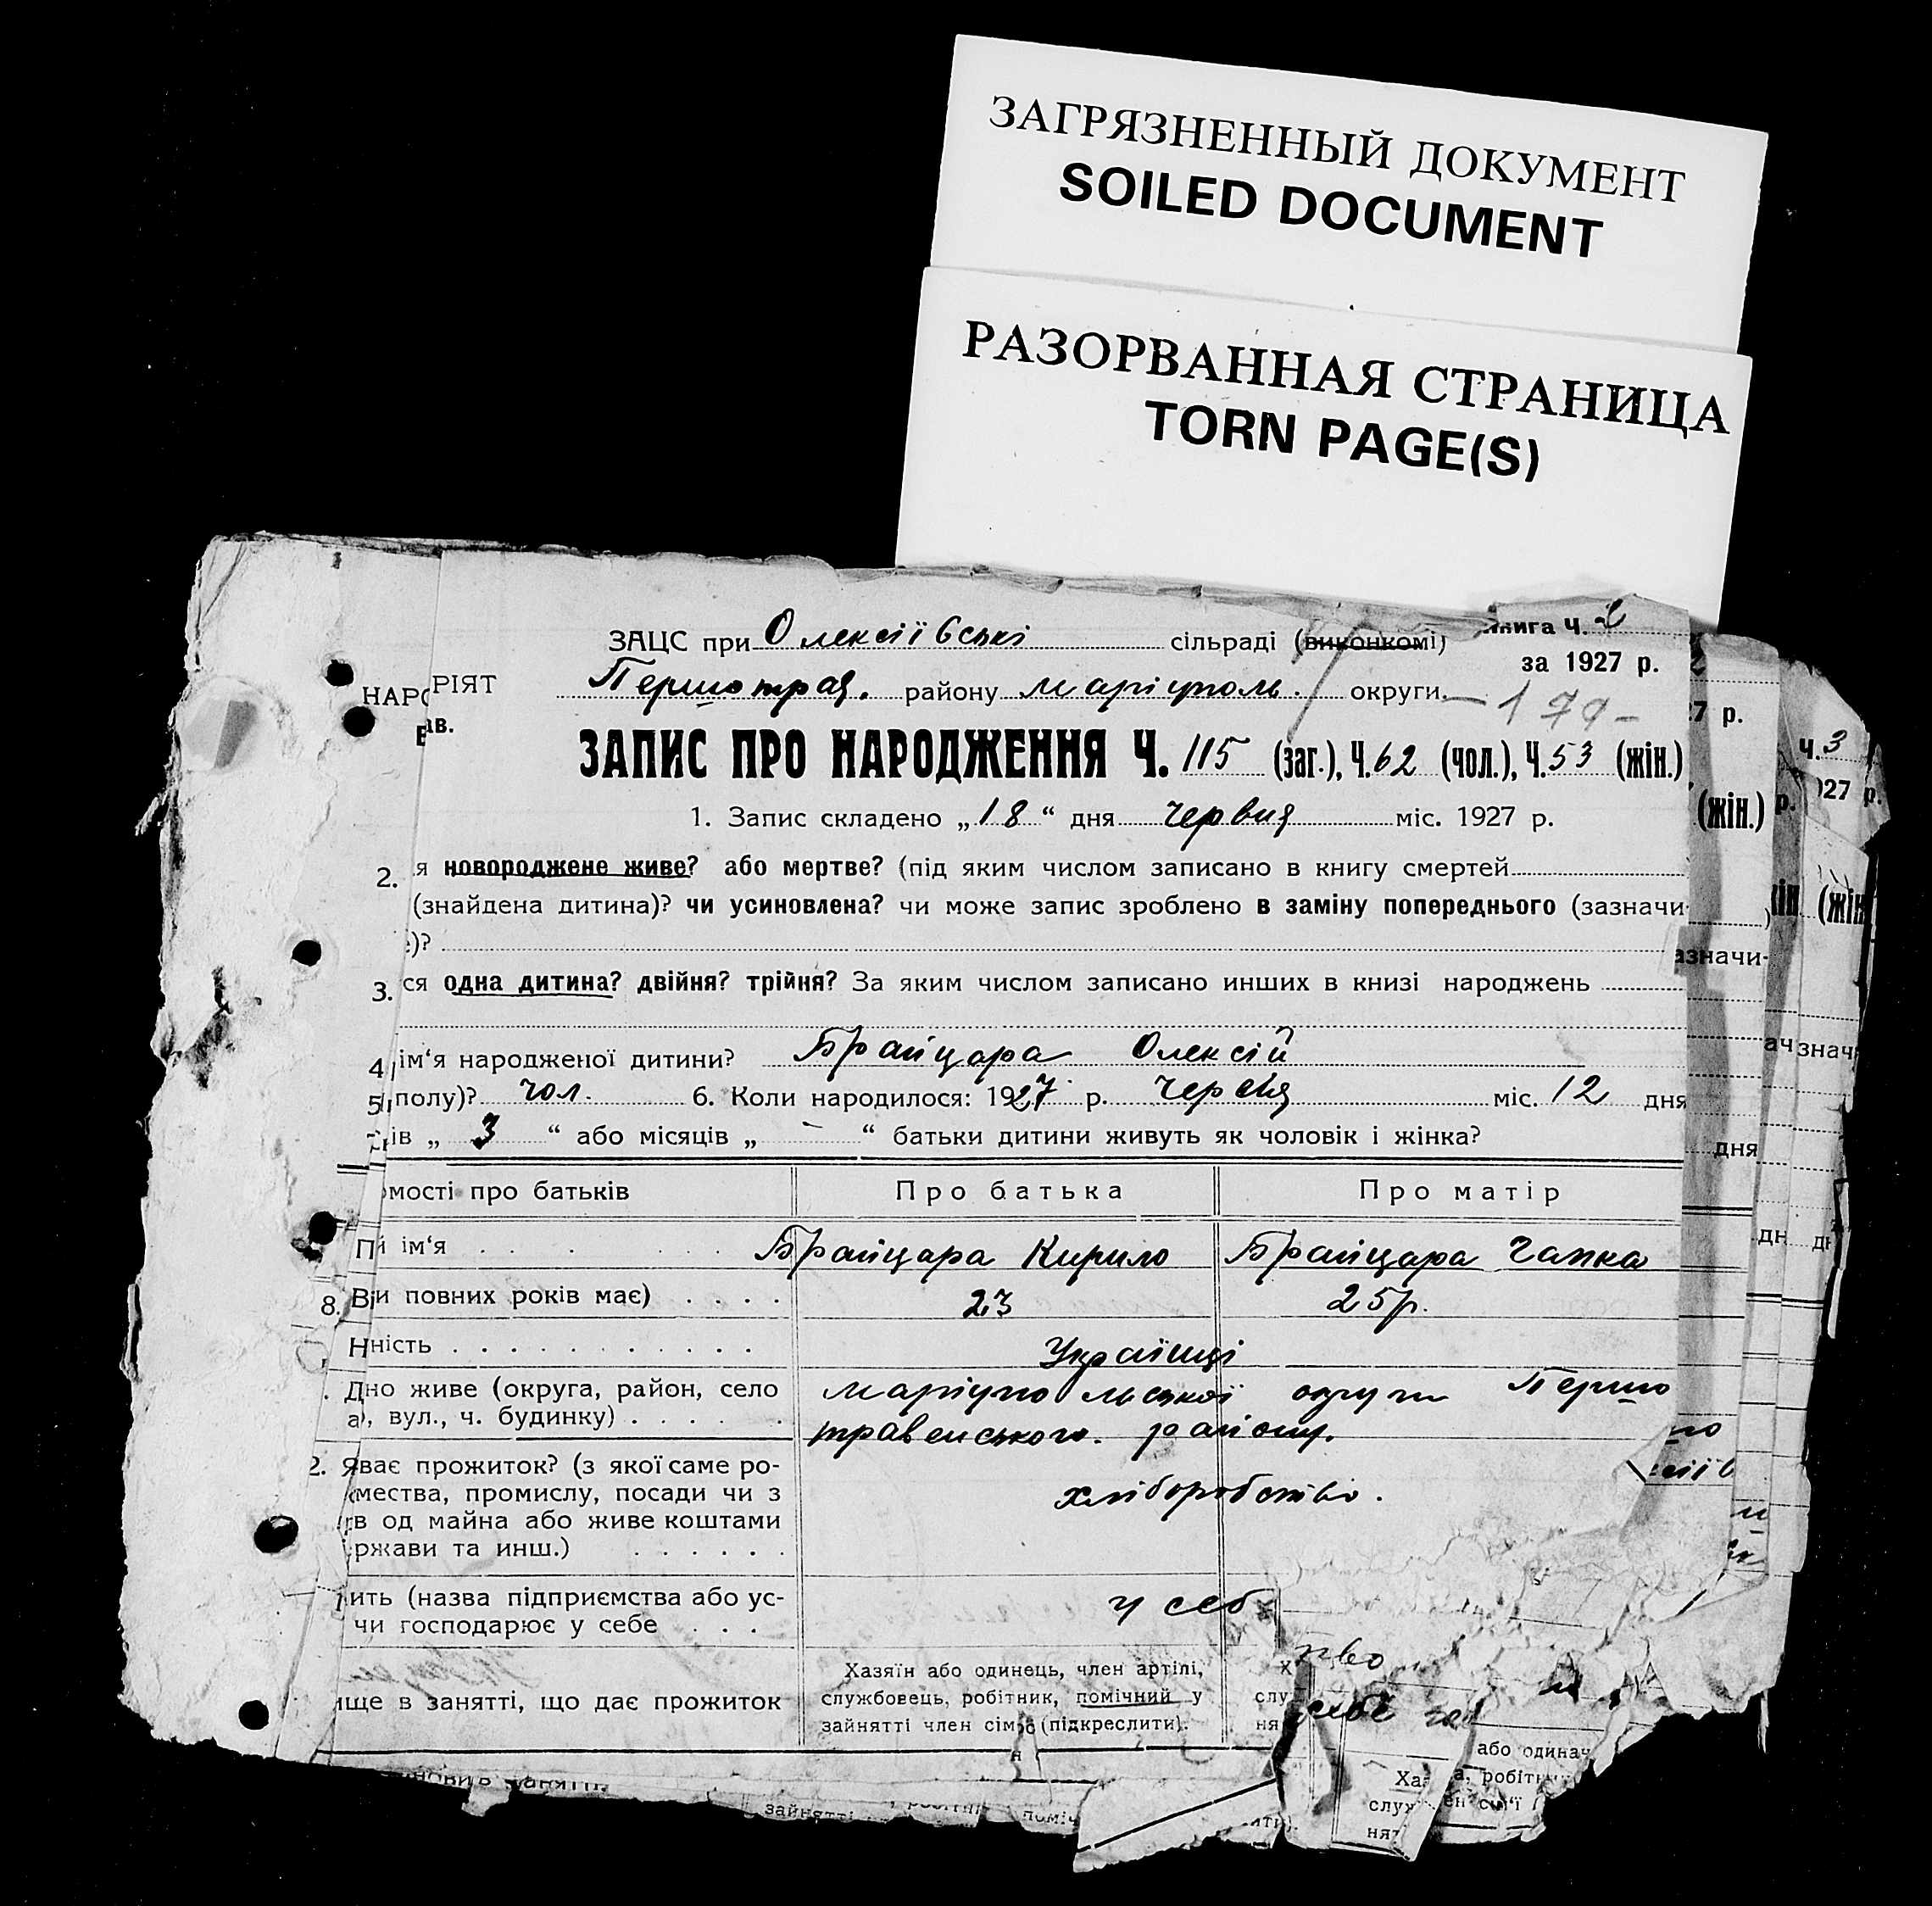 ЗАГРЯЗНЕННЫЙ ДОКУМЕНТ
SOILED DOCUMENT
РАЗОРВАННАЯ СТРАНИЦА
TORN PAGE(S)
ЗАЦС при Олексіївські сільраді (виконкомі)
книга ч. 2
за 1927 р.
РІЯТ Першотрав. району Маріуполь. округи. - 179 -
НАРО
ав.
7 р.
ЗАПИС ПРО НАРОДЖЕННЯ Ч. 115 (заг.), Ч. 62 (чол.), Ч. 53 (жін.)
ч. 3
927 р.
1. Запис складено „18“ дня червня міс. 1927 р.
(жін.)
р.
2. я новороджене живе? або мертве? (під яким числом записано в книгу смертей
(знайдена дитина)? чи усиновлена? чи може запис зроблено в заміну попереднього (зазначи-
е)?
азначи-
3. ся одна дитина? двійня? трійня? За яким числом записано инших в книзі народжень
4 ім‘я народженої дитини? Брайцара Олексій
5 полу)? чол. 6. Коли народилося: 1927 р. червня міс. 12 дня
ів „ 3 “ або місяців „ - “ батьки дитини живуть як чоловік і жінка?
дня
омості про батьків Про батька Про матір
П й ім‘я Брайцара Кирило Брайцара Ганка
8. Ві и повних років має) 23 25 р.
Н ність Українці
Д но живе (округа, район, село Маріупольської округи Першо
а), вул., ч. будинку) травенського району.
2. Я ває прожиток? (з якої саме ро-
мества, промислу, посади чи з хліборобство.
в од майна або живе коштами
ржави та инш.)
ить (назва підприємства або ус- у себ
чи господарює у себе
Хазяїн або одинець, член артілі,
ище в занятті, що дає прожиток службовець, робітник, помічний у
зайнятті член сім (підкреслити).
слу
ня
або одинач
Ха а, робітн
слу ен сім‘ї
ня
зайнятті